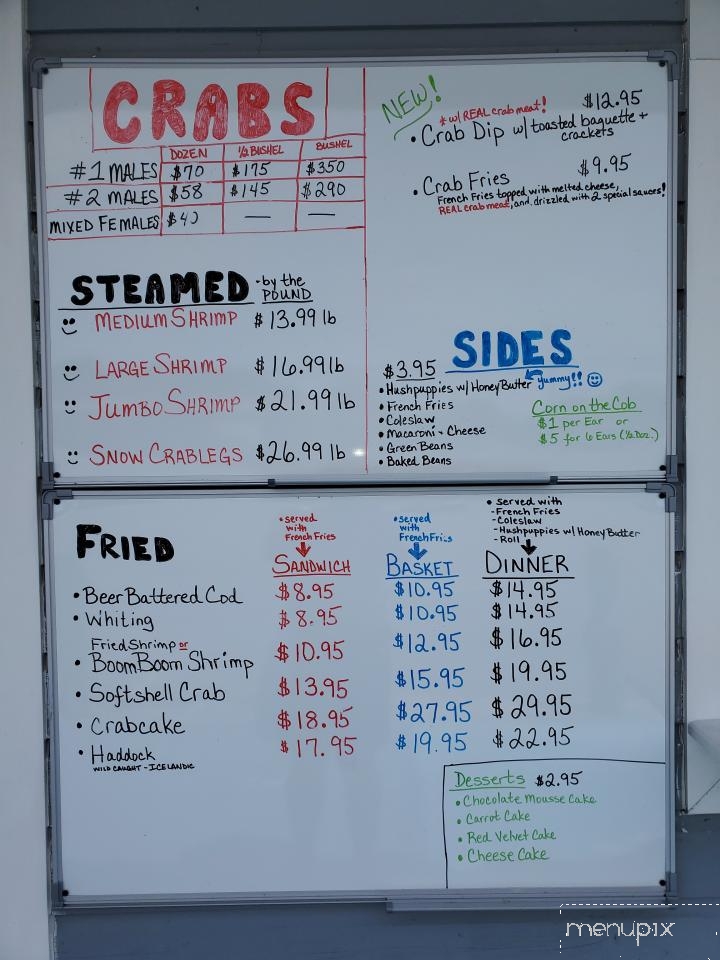 CRABS
DOZEN 1/2 BUSHEL BUSHEL
#1 MALES $70 $175 $350
#2 MALES $58 $145 $290
MIXED FEMALES — —
STEAMED - by the POUND
MEDIUM SHRIMP $13.99 lb
LARGE SHRIMP $16.99 lb
JUMBO SHRIMP $21.99 lb
SNOW CRABLEGS $26.99 lb
NEW!
* w/ REAL crab meat! $12.95
• Crab Dip w/ toasted baguette + crackets
• Crab Fries $9.95
French Fries topped with melted cheese,
REAL crab meat, and drizzled with 2 special sauces!
$3.95 SIDES
• Hushpuppies w/ Honey Butter Yummy!!
• French Fries
• Coleslaw
• Macaroni - Cheese
• Green Beans
• Baked Beans
Corn on the Cob
$1 per Ear or
$5 for 6 Ears (1/2 Doz.)
FRIED
• served with French Fries
SANDWICH
• served with French Fries
BASKET
• served with
- French Fries
- Coleslaw
- Hushpuppies w/ Honey Butter
- Roll
DINNER
• Beer Battered Cod $8.95 $10.95 $14.95
• Whiting $8.95 $10.95 $14.95
Fried Shrimp or
• Boom Boom Shrimp $10.95 $12.95 $16.95
• Softshell Crab $13.95 $15.95 $19.95
• Crabcake $18.95 $27.95 $29.95
• Haddock $17.95 $19.95 $22.95
WILD CAUGHT - ICELANDIC
Desserts $2.95
• Chocolate Mousse Cake
• Carrot Cake
• Red Velvet Cake
• Cheese Cake
menupix